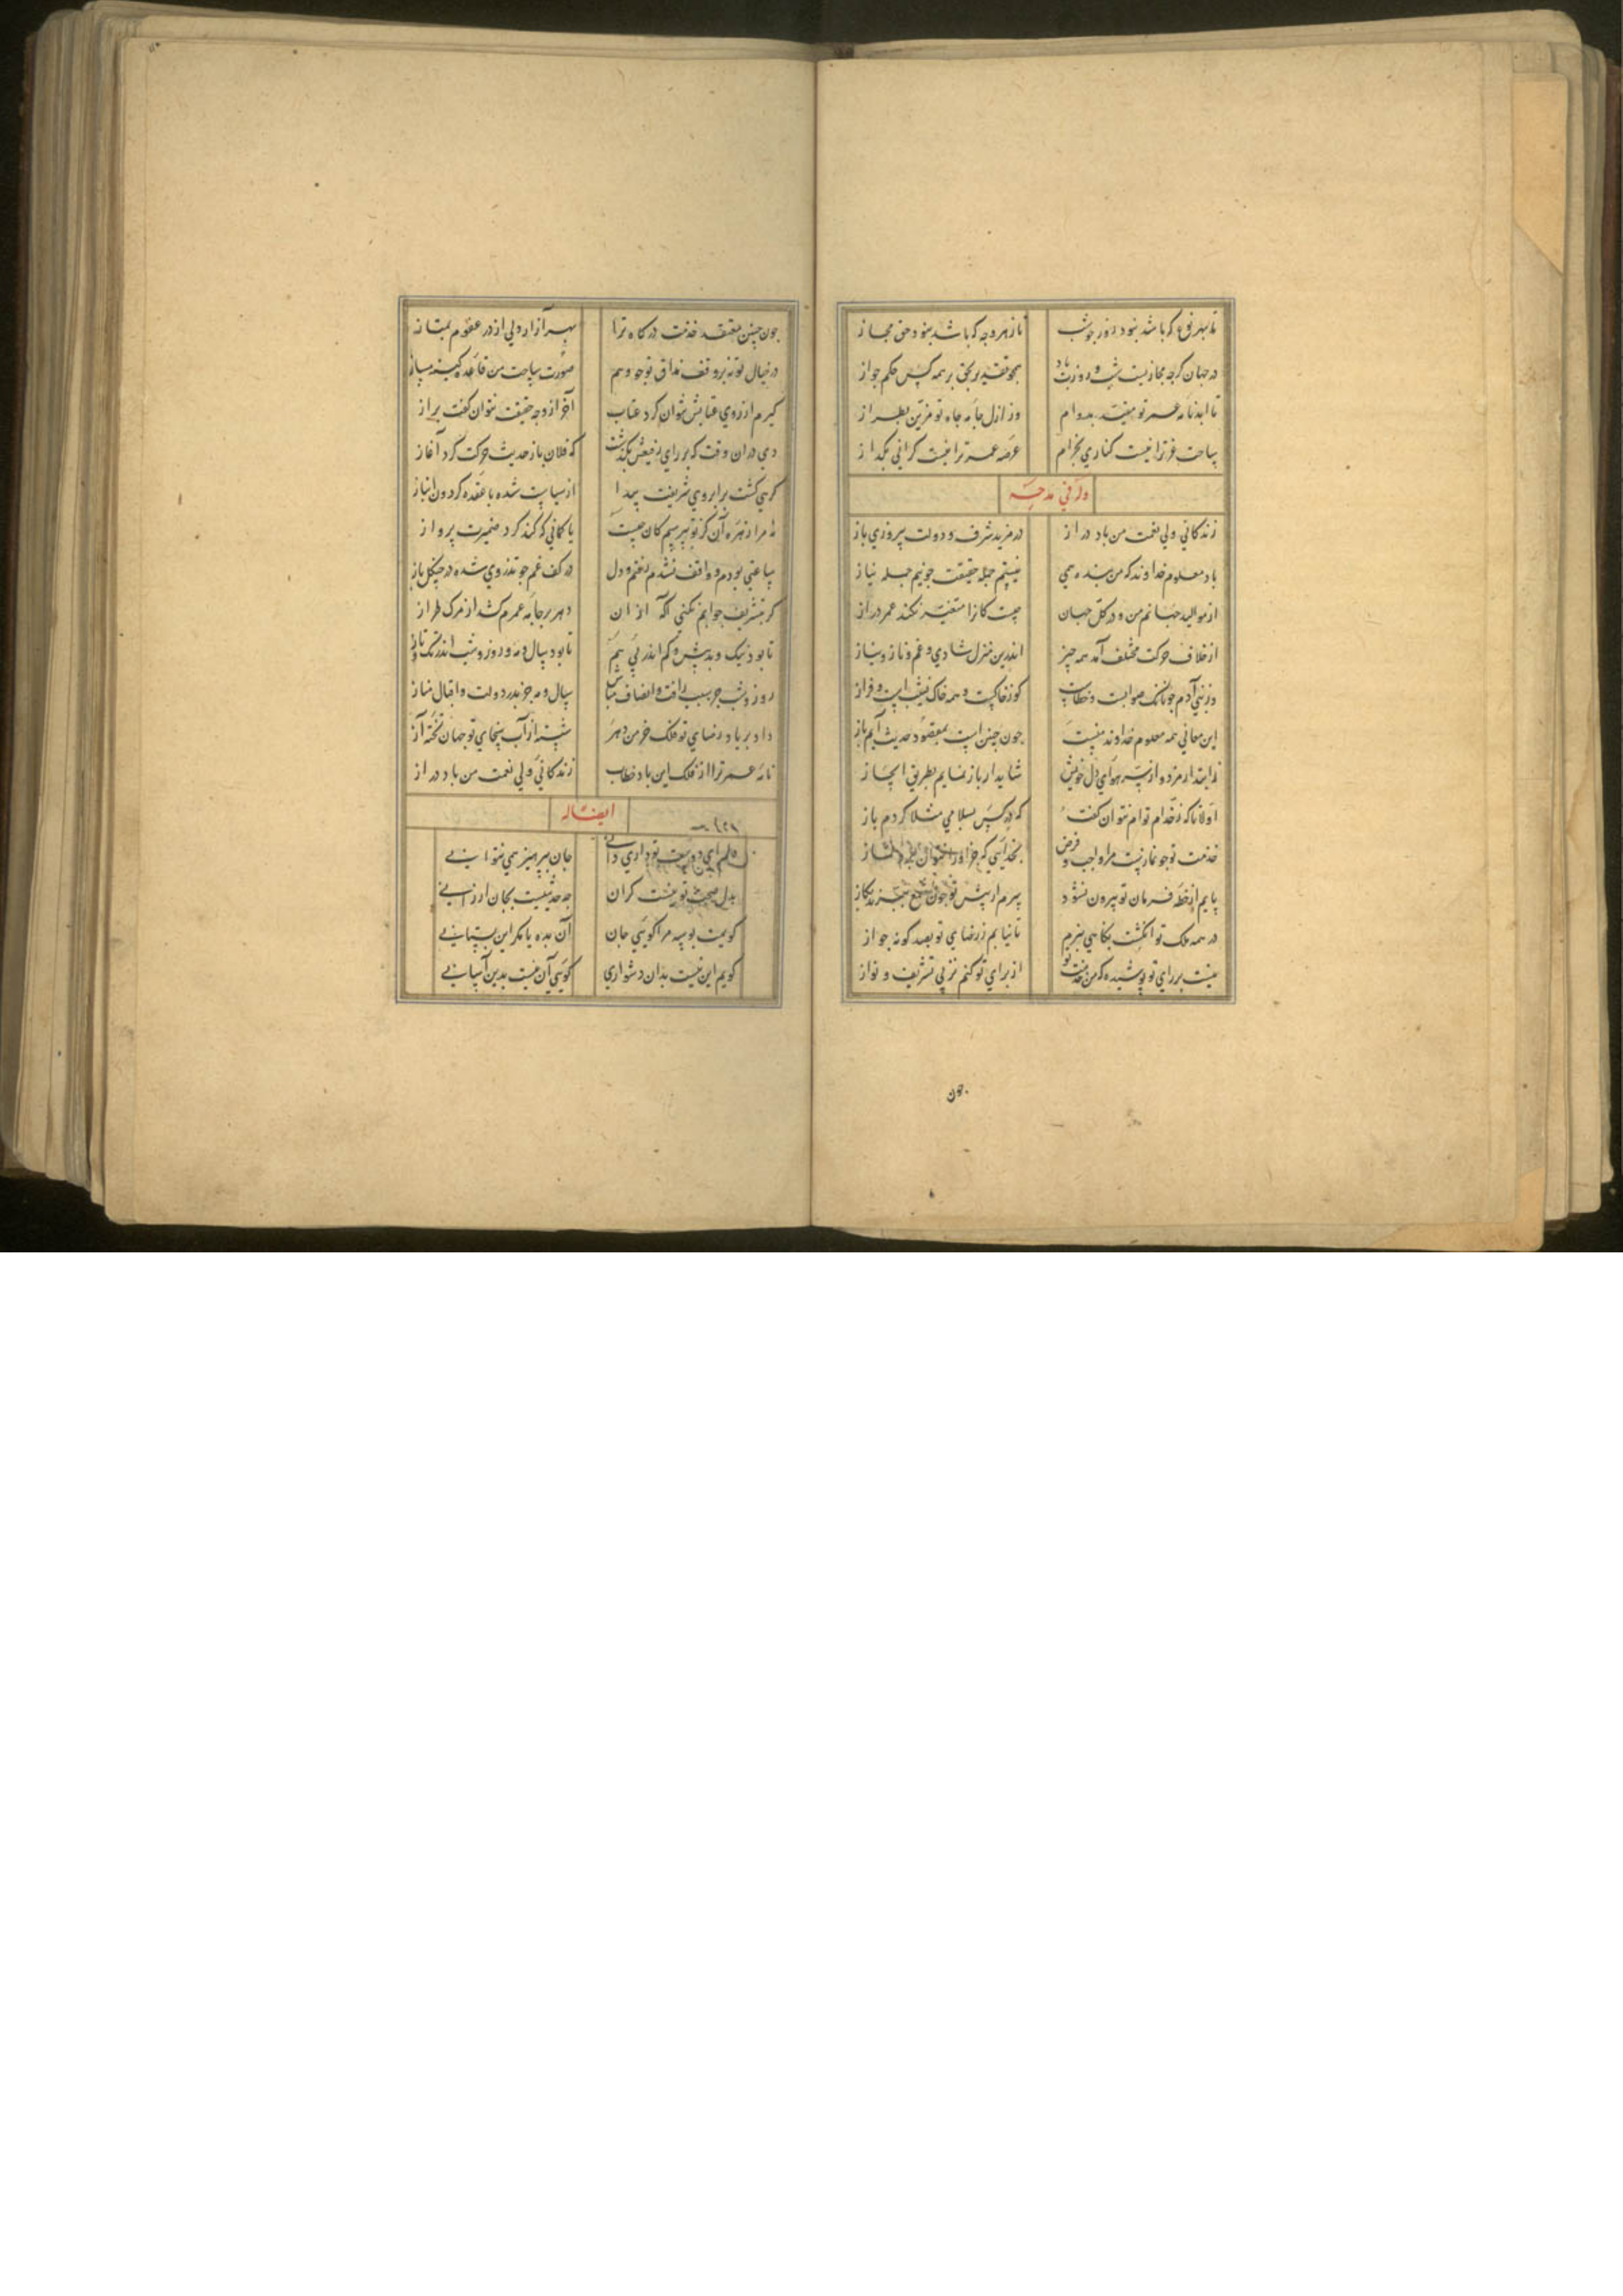 تا بهر نوع که باشد نبود روز چو شب	تا ز هر وجه که باشد نبود حق مجاز
در جهان گرچه مجازیست شب و روزت باد	همچو تقدیر بحق بر همه کس حکم جواز
تا ابد نامه عمر تو مقید بدوام	وز ازل جامه جاه تو مزین بطراز
ساحت عز ترا نیست کناری بخرام	عرصه عمر ترا نیست کرانی بگداز
وله فی مدحه
زندکانی ولی نعمت من باد دراز	در مزید شرف و دولت پیروزی باز
باد معلوم خداوند که من بنده همی	نیستم جمله حقیقت چو نیم جمله نیاز
از موالید جهانم من و در کل جهان	چیست کانرا متغیر نکند عمر دراز
از خلاف حرکت مختلف آمد همه چیز	اندرین منزل شادی و غم و ناز و نیاز
وز بنی آدم چونانک صوابست و خطاست	کوز خاکست و همه خاک نشیبست و فراز
این معانی همه معلوم خداوند منست	چون چنین است بمقصود حدیث آیم باز
شاید ار باز نمایم بطریق ایجاز
اولا تا که ز خدام توام نتوان گفت	که بکس بسلامی مثلا کردم باز
خدمت تو چو نمازست مرا واجب و فرض	بخدایی که جز او را نتوان برد نماز
پایم از خطه فرمان تو بیرون نشود	سرم ار پیش تو چون شمع ببرند بکاز
در همه ملک تو انگشت بکاهی نبرم	تا نیابم ز رضای تو بصد گونه جواز
نیست بر رای تو پوشیده که من خدمت تو	از برای تو کنم نز پی تشریف و نواز
چون
چون چنین معتقد خدمت درگاه ترا	بهر آزار ولی از در عفوم بمتاز
در خیال تو نه بر وفق مذاق تو چو وهم	صورت ساحت من قاعده کینه مساز
گیرم از روی عتابش نتوان کرد عتاب	آخر از وجه حقیقت نتوان گفت براز
دی در ان وقت که بر رای رفیعش بگذشت	که فلان باز حدیث حرکت کرد آغاز
گرهی گشت بر ابروی شریفت پیدا	از سیاست شده با عقده گردون انباز
نه مرا زهره آن کز تو بپرسم کان چیست	یا کمانی که کند گرد ضمیرت پرواز
ساعتی بودم و واقف نشدم رفتم و دل	در کف غم چو تذروی شده در چنگل باز
گر بتشریف جوابم نکنی آگه از ان	دهر بر جامه عمرم کشد از مرک طراز
تا بود نیک و بد و بیش و کم اندر پی هم	تا بود سال و مه و روز و شب اندر تک و تاز
روز و شب جز سبب رافت و انصاف مباش	سال و مه جز بدر دولت و اقبال مناز
داده بر باد رضای تو فلک خرمن دهر	شسته از آب سخای تو جهان تخته آز
نامه عمر ترا از فلک این باد خطاب	زندکانی ولی نعمت من باد دراز
ایضا له
دلم ای دوست تو داری دانی	جان ببر نیز همی نتوانی
بدل صحبت تو نیست گران	چه حدیثیست بجان ارزانی
گویمت بوسه مرا گویی جان	آن بده یا مگر این بستانی
گویم این نیست بدان دشواری	گویی آن نیست بدین آسانی